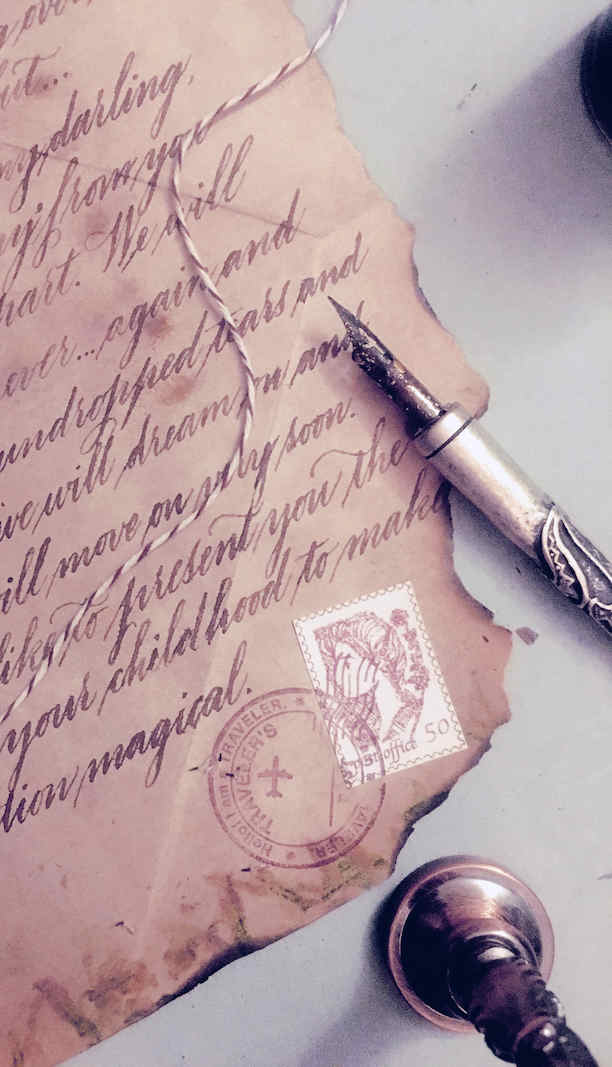 my darling,
from you
hart. We will
ever... again and
undropped tears and
we will dream on and
will move on very soon.
like to present you the
your childhood to make
tion magical.
50
Post office
Hello! I am a TRAVELER.
TRAVELER'S
TRAVELER